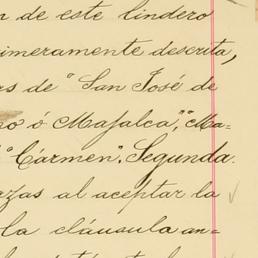 n de este lindero
imeramente descrita,
s de "San José de
no ó Majalca," "Ma-
" "Cármen". Segunda.
zas al aceptar la
la cláusula an-